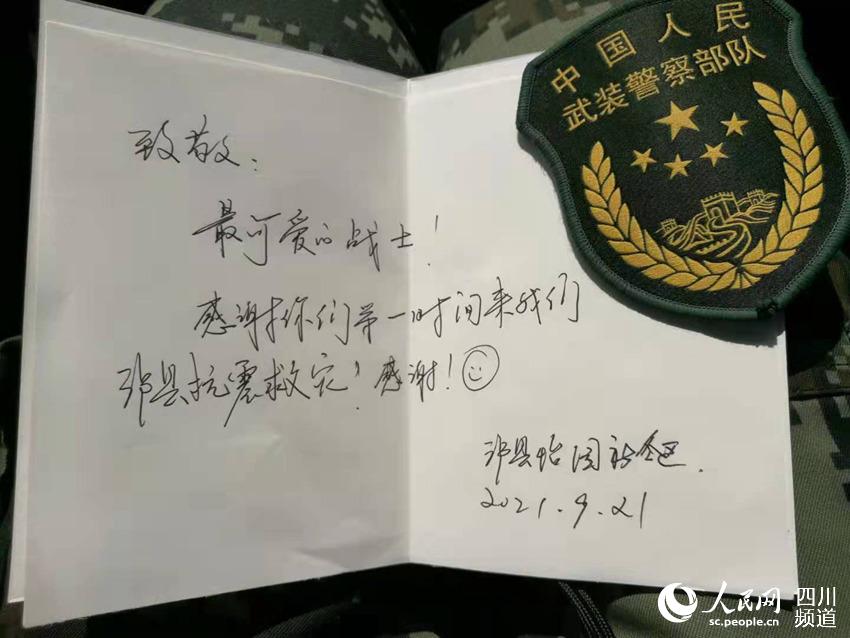 致敬：
最可爱的战士！
感谢你们第一时间来我们
泸县抗震救灾！感谢！
泸县怡园社区.
2021.9.21
中国人民
武装警察部队
人民网
sc.people.cn
四川
频道